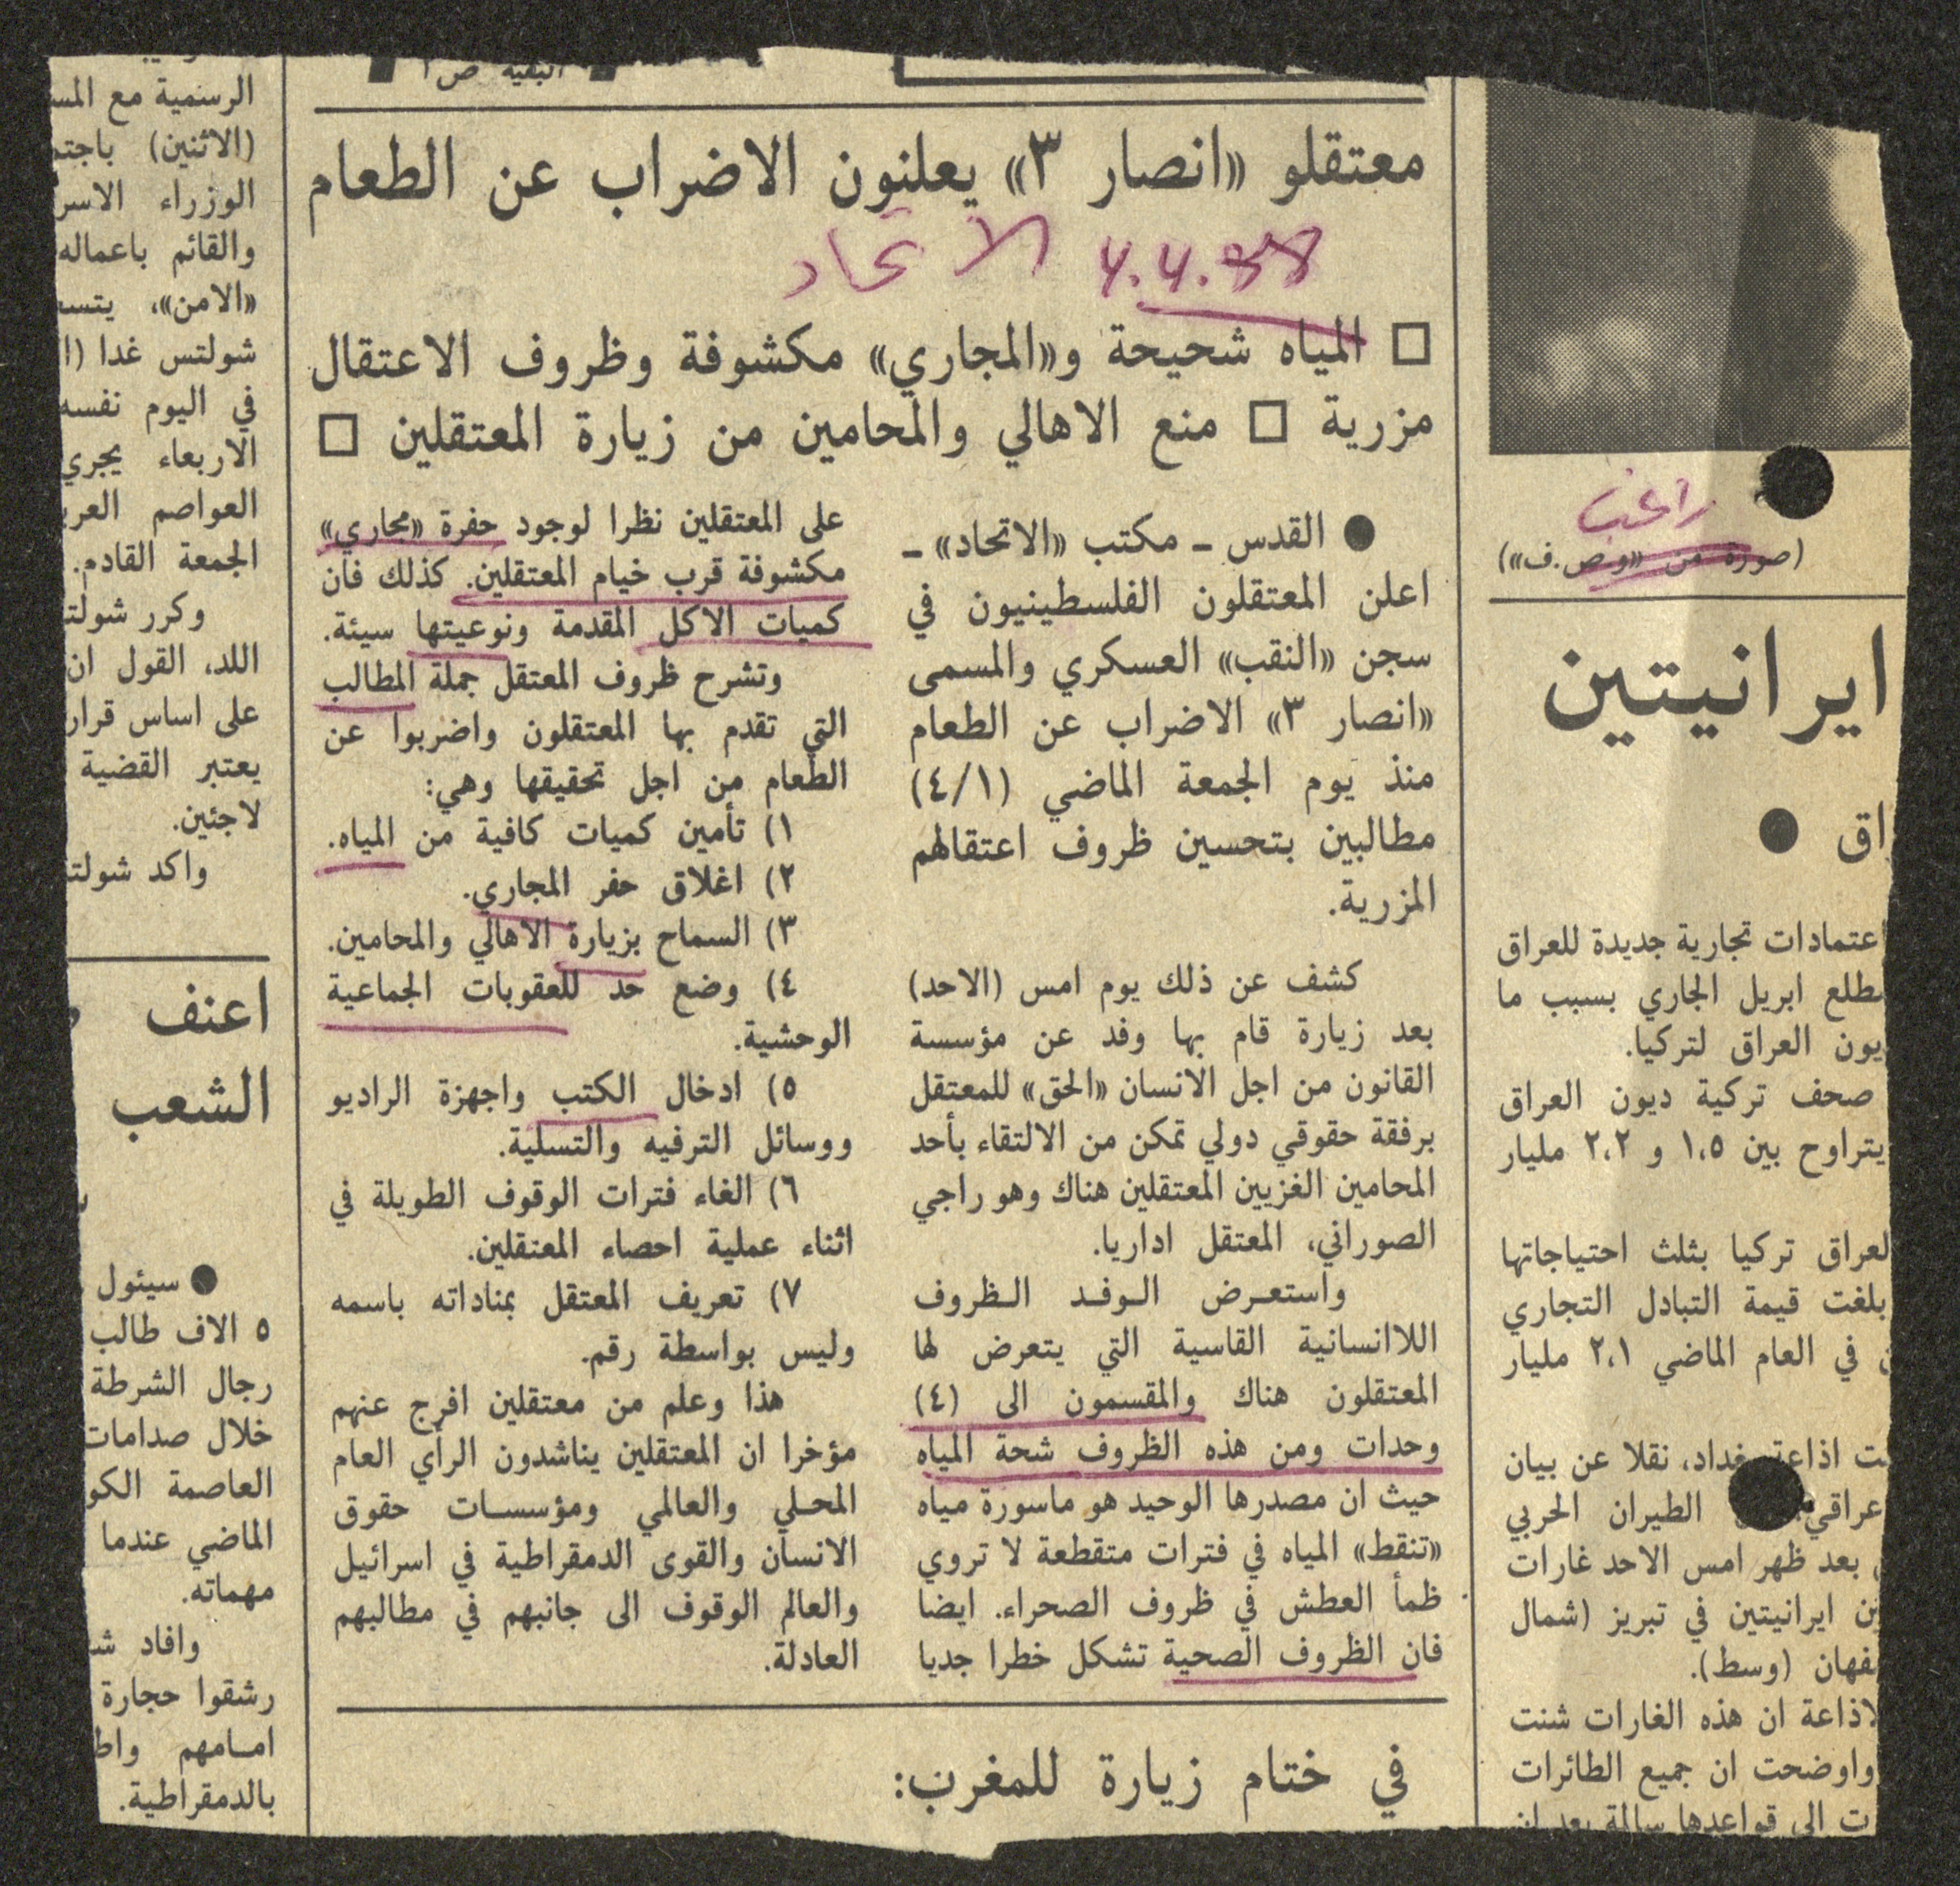 البقية ص
معتقلو «انصار ٣» يعلنون الاضراب عن الطعام
4.4.88 الاتحاد
□ المياه شحيحة و«المجاري» مكشوفة وظروف الاعتقال
مزرية □ منع الاهالي والمحامين من زيارة المعتقلين □
● القدس ـ مكتب «الاتحاد» ـ
اعلن المعتقلون الفلسطينيون في
سجن «النقب» العسكري والمسمى
«انصار ٣» الاضراب عن الطعام
منذ يوم الجمعة الماضي (٤/١)
مطالبين بتحسين ظروف اعتقالهم
المزرية.
كشف عن ذلك يوم امس (الاحد)
بعد زيارة قام بها وفد عن مؤسسة
القانون من اجل الانسان «الحق» للمعتقل
برفقة حقوقي دولي تمكن من الالتقاء بأحد
المحامين الغزيين المعتقلين هناك وهو راجي
الصوراني، المعتقل اداريا.
واستعرض الوفد الظروف
اللاانسانية القاسية التي يتعرض لها
المعتقلون هناك والمقسمون الى (٤)
وحدات ومن هذه الظروف شحة المياه
حيث ان مصدرها الوحيد هو ماسورة مياه
«تنقط» المياه في فترات متقطعة لا تروي
ظمأ العطش في ظروف الصحراء. ايضا
فان الظروف الصحية تشكل خطرا جديا
على المعتقلين نظرا لوجود حفرة «مجاري»
مكشوفة قرب خيام المعتقلين. كذلك فان
كميات الاكل المقدمة ونوعيتها سيئة.
وتشرح ظروف المعتقل جملة المطالب
التي تقدم بها المعتقلون واضربوا عن
الطعام من اجل تحقيقها وهي:
١) تأمين كميات كافية من المياه.
٢) اغلاق حفر المجاري.
٣) السماح بزيارة الاهالي والمحامين.
٤) وضع حد للعقوبات الجماعية
الوحشية.
٥) ادخال الكتب واجهزة الراديو
ووسائل الترفيه والتسلية.
٦) الغاء فترات الوقوف الطويلة في
اثناء عملية احصاء المعتقلين.
٧) تعريف المعتقل بمناداته باسمه
وليس بواسطة رقم.
هذا وعلم من معتقلين افرج عنهم
مؤخرا ان المعتقلين يناشدون الرأي العام
المحلي والعالمي ومؤسسات حقوق
الانسان والقوى الدمقراطية في اسرائيل
والعالم الوقوف الى جانبهم في مطالبهم
العادلة.
في ختام زيارة للمغرب:
(صورة من «و.ص.ف»)
ايرانيتين
اق ●
اعتمادات تجارية جديدة للعراق
مطلع ابريل الجاري بسبب ما
يون العراق لتركيا.
صحف تركية ديون العراق
يتراوح بين ١،٥ و ٢،٢ مليار
لعراق تركيا بثلث احتياجاتها
بلغت قيمة التبادل التجاري
في العام الماضي ٢،١ مليار
ت اذاعة بغداد، نقلا عن بيان
عراقي الطيران الحربي
بعد ظهر امس الاحد غارات
ين ايرانيتين في تبريز (شمال
فهان (وسط).
لاذاعة ان هذه الغارات شنت
واوضحت ان جميع الطائرات
ت الى قواعدها سالمة بعد ان
الرسمية مع المس
(الاثنين) باجتم
الوزراء الاسر
والقائم باعماله
«الامن»، يتسع
شولتس غدا (ا
في اليوم نفسه
الاربعاء يجري
العواصم العرب
الجمعة القادم.
وكرر شولت
اللد، القول ان
على اساس قرار
يعتبر القضية
لاجئين.
واكد شولت
اعنف
الشعب
● سيئول
٥ الاف طالب
رجال الشرطة
خلال صدامات
العاصمة الكو
الماضي عندما
مهماته.
وافاد ش
رشقوا حجارة
امامهم واط
بالدمقراطية.